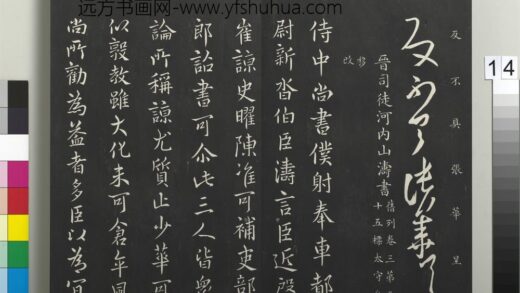 远方书画网-www.yfshuhua.com
14
反不具張華呈
反不具張華呈
晉司徒河内山濤書
舊列卷三第
十五標太守
移
改
侍中尚書僕射奉車都
尉新沓伯臣濤言臣近啟
崔諒史曜陳准可補吏部
郎詔書可尒此三人皆衆
論所稱諒尤質止少華可
以敦教雖大化未可倉卒風
尚所勸為益者多臣以為宜